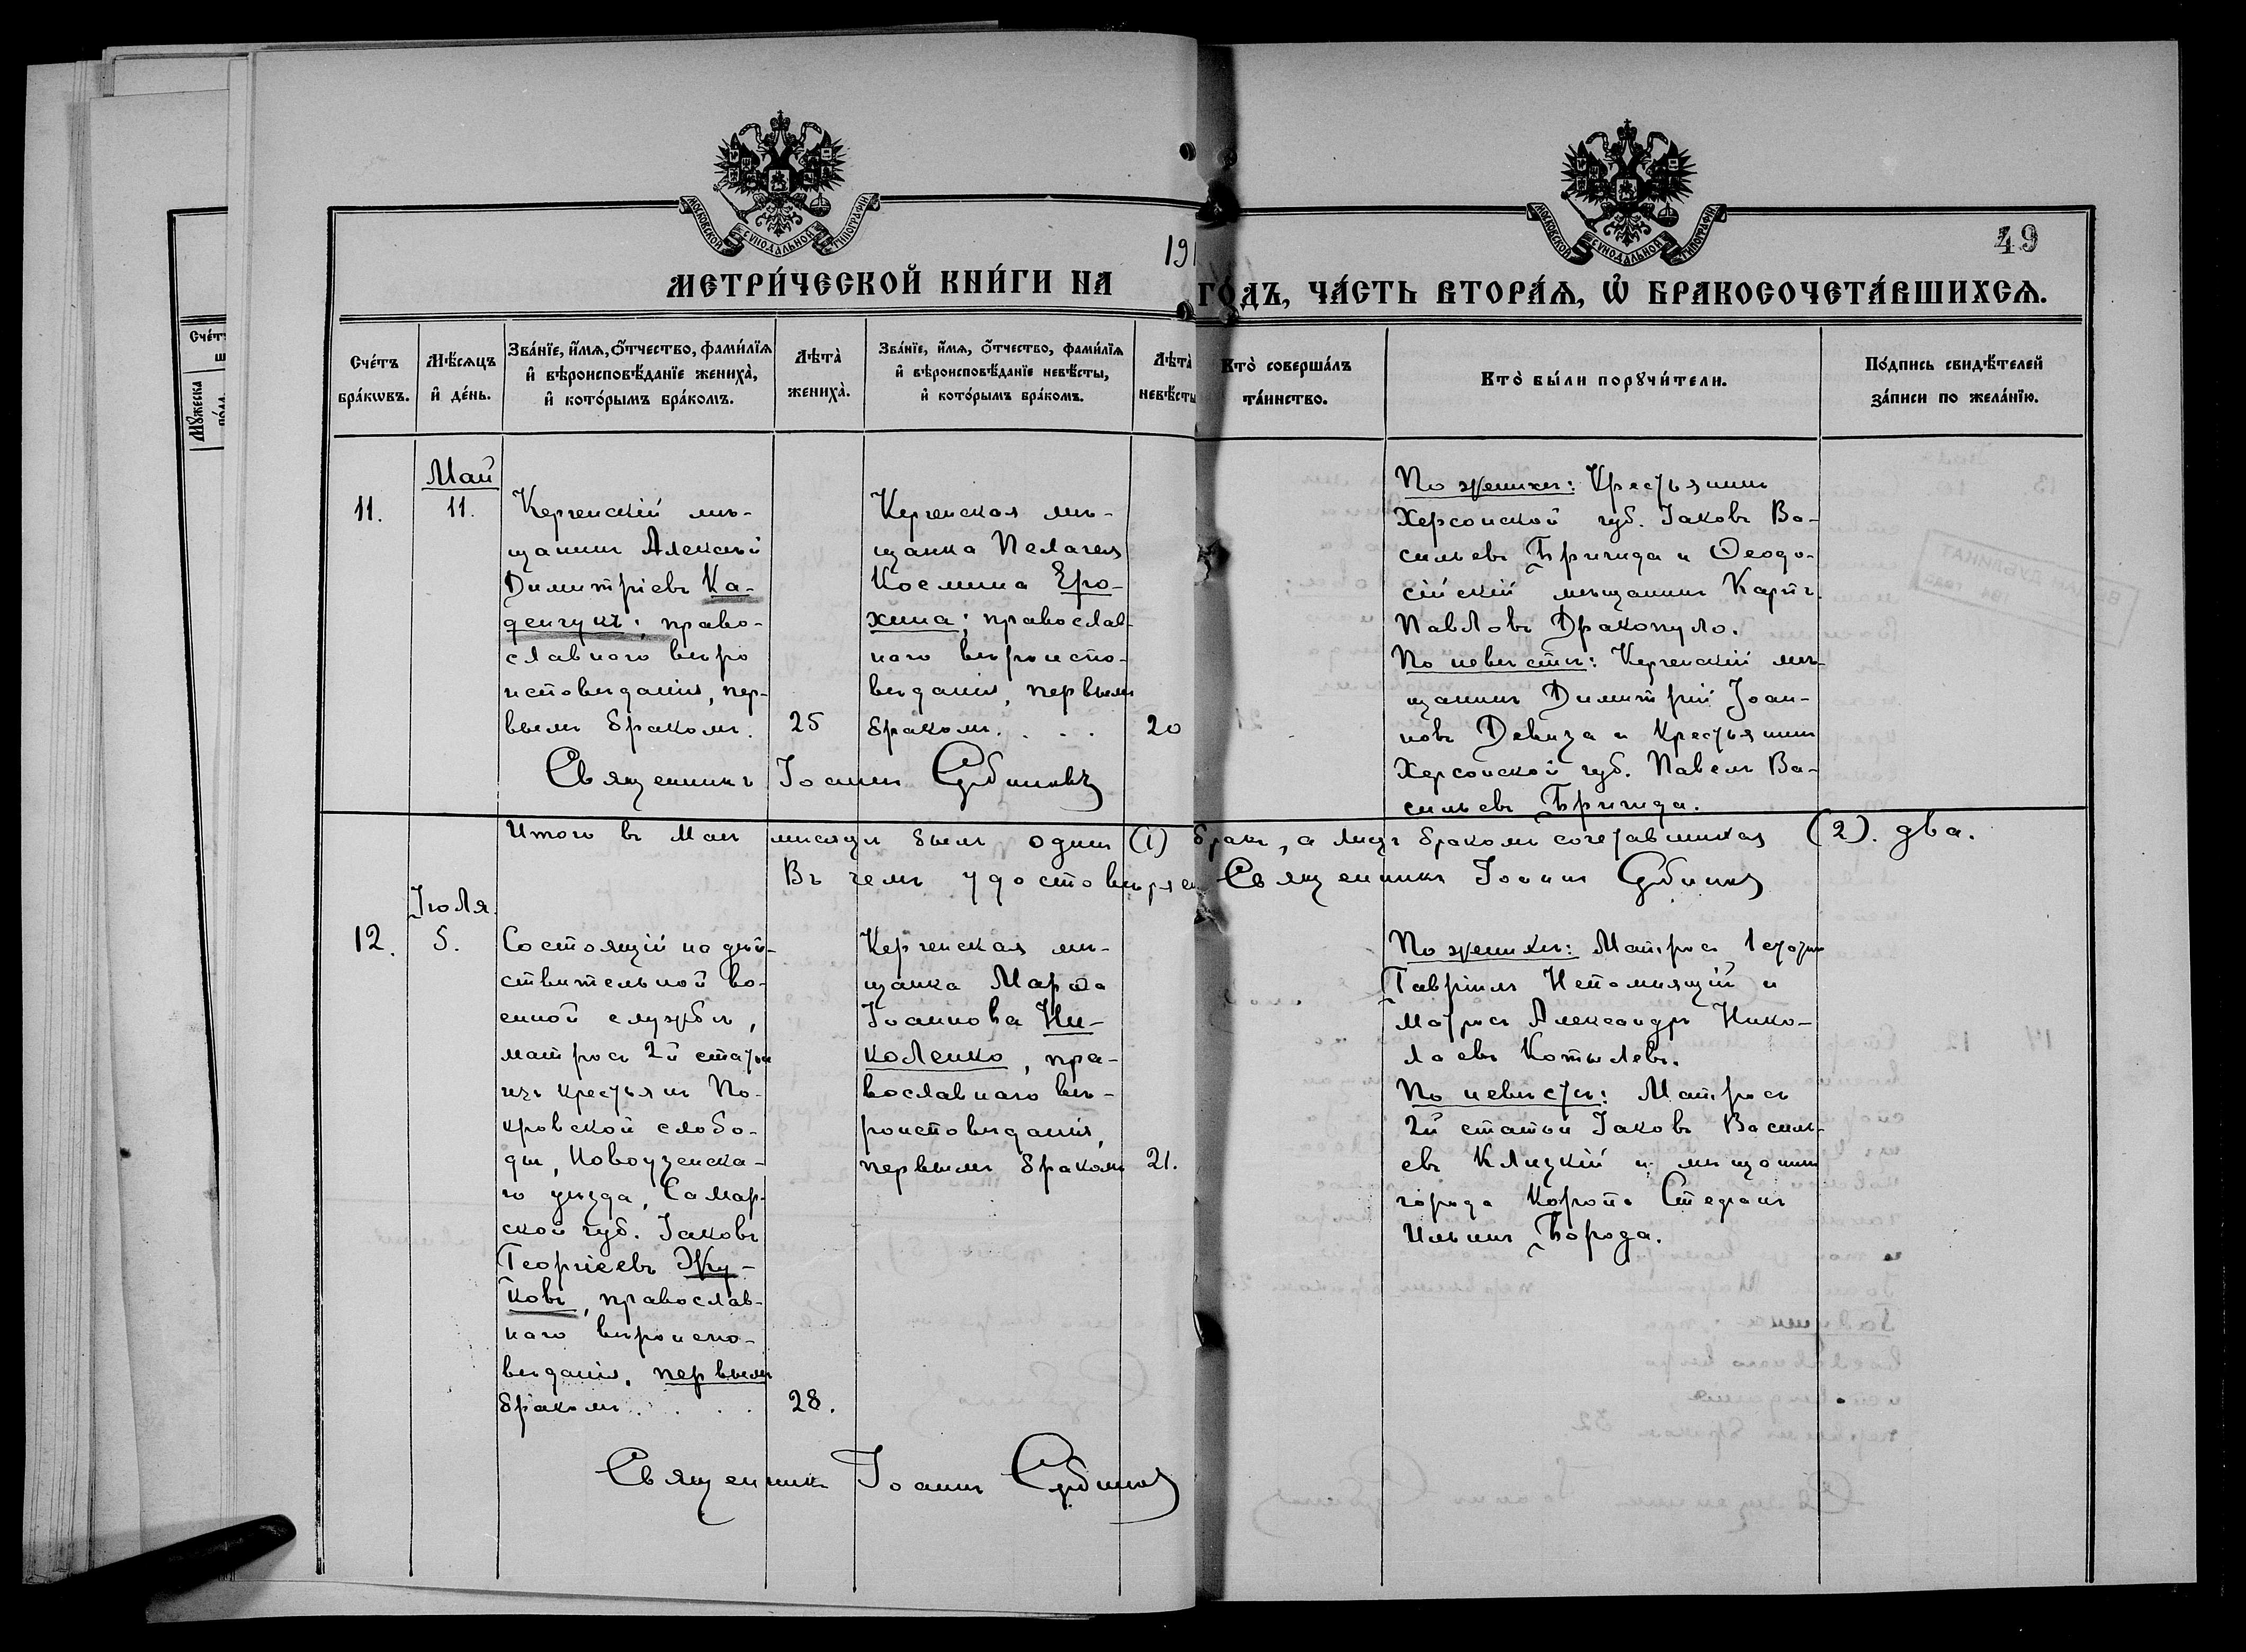 МОСКОВСКОЙ СѴНОДАЛЬНОЙ ТИПОГРАФІИ
МОСКОВСКОЙ СѴНОДАЛЬНОЙ ТИПОГРАФІИ
49
191
МЕТРИ́ЧЕСКОЙ КНИ́ГИ НА
ГО́ДЪ, ЧА́СТЬ ВТОРА́Ѧ, Ѡ҆ БРАКОСОЧЕТА́ВШИХСѦ.
Сче́тъ
бра́кѡвъ.
Мѣ́сѧцъ
и҆ де́нь.
Зва́нїе, и҆́мѧ, ѻ҆́тчество, фами́лїѧ
и҆ вѣроисповѣ́данїе жениха̀,
и҆ кото́рымъ бра́комъ.
Лѣта̀
жениха̀.
Зва́нїе, и҆́мѧ, ѻ҆́тчество, фами́лїѧ
и҆ вѣроисповѣ́данїе невѣ́сты,
и҆ кото́рымъ бра́комъ.
Лѣта̀
невѣ́сты
Кто̀ соверша́лъ
та́инство.
Кто̀ бы́ли порꙋчи́тели.
По́дпись свидѣ́телей
за́писи по жела́нїю.
11.
Май
11.
Керченскій мѣ-
щанинъ Алексѣй
Димитріевъ Ка-
денчукъ; право-
славнаго вѣро
исповѣданія, пер-
вымъ бракомъ.
25
Керченская мѣ-
щанка Пелагея
Косьмина Еро-
хина; православ-
наго вѣроиспо-
вѣданія, первымъ
бракомъ. . . .
20
Священникъ Іоаннъ Сербиновъ
По женихѣ: Крестьянинъ
Херсонской губ. Іаковъ Ва-
сильевъ Бричида и Ѳеодо-
сійскій мѣщанинъ Карпъ
Павловъ Дракопуло.
По невѣстѣ: Керченскій мѣ-
щанинъ Димитрій Іоан-
новъ Девиза и Крестьянинъ
Херсонской губ. Павелъ Ва-
сильевъ Бричида.
Итого въ Маѣ мѣсяцѣ былъ одинъ (1) бракъ, а лицъ бракомъ сочетавшихся (2). два.
Въ чемъ удостовѣряемъ Священникъ Іоаннъ Сербиновъ
12.
Іюля.
5.
Состоящій на дѣй-
ствительной во-
енной службѣ,
матросъ 2й статьи
изъ крестьянъ По-
кровской слобо-
ды, Новоузенска-
го уѣзда, Самар-
ской губ. Іаковъ
Георгіевъ Жу-
ковъ, православ-
наго вѣроиспо-
вѣданія, первымъ
бракомъ. . . .
28.
Керченская мѣ-
щанка Марѳа
Іоаннова Ни-
коленко, пра-
вославнаго вѣ-
роисповѣданія,
первымъ бракомъ
21.
Священникъ Іоаннъ Сербиновъ
По женихѣ: Матросъ 1 статьи
Гавріилъ Непомнящій и
Матросъ Александръ Нико-
лаевъ Котылевъ.
По невѣстѣ: Матросъ
2й статьи Іаковъ Василь-
евъ Клицкій и мѣщанинъ
города Коропа Стефанъ
Ильинъ Борода.